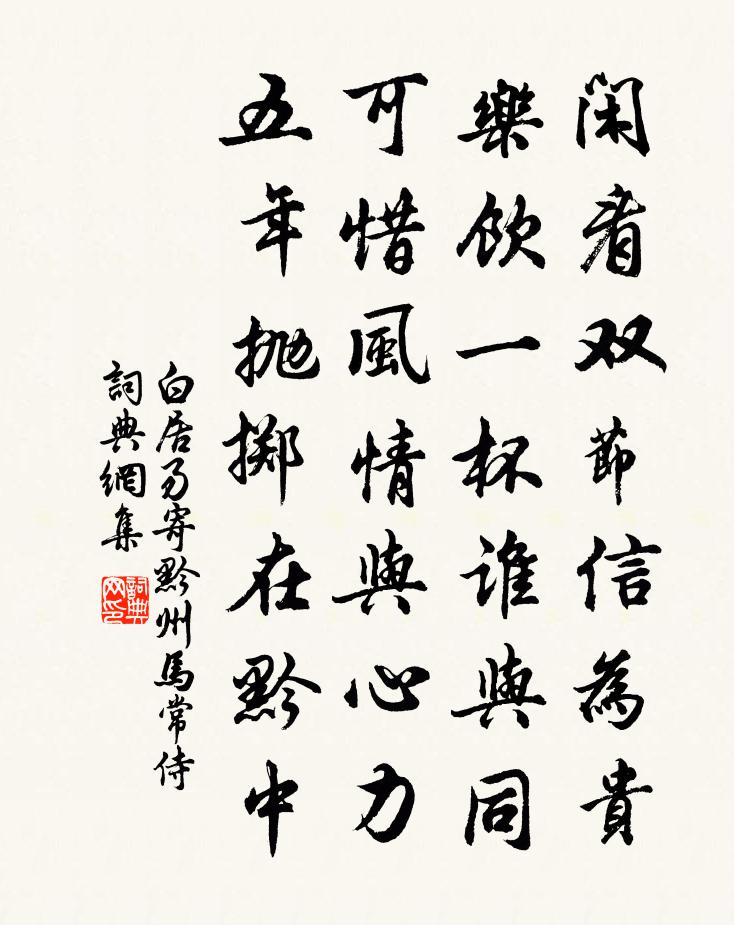 闲看双節信為貴
樂飲一杯誰與同
可惜風情與心力
五年抛掷在黔中
白居易寄黔州馬常侍
詞典網集
詞典网印